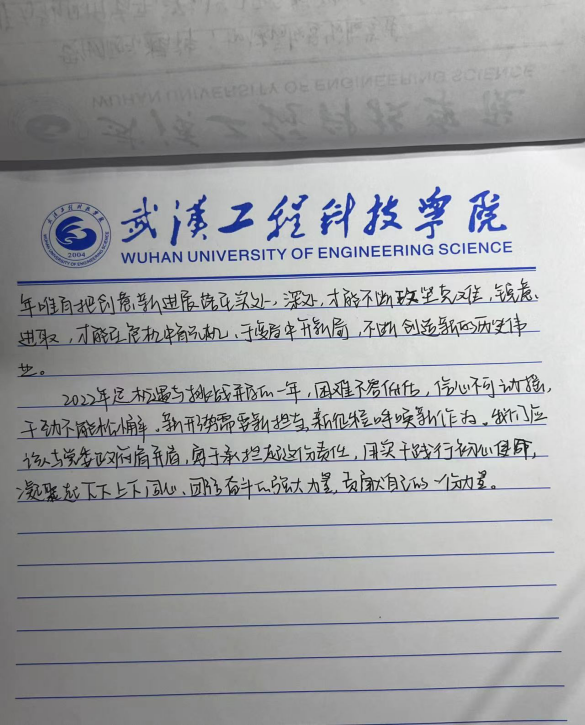 武漢工程科技學院
WUHAN UNIVERSITY OF ENGINEERING SCIENCE
2004
年唯有把创意新进展落在实处、深处,才能不断攻坚克难,锐意
进取,才能在危机中育先机、于变局中开新局,不断创造新的历史伟
业。
2022年是机遇与挑战并存的一年,困难不容低估,信心不可动摇,
干劲不能松懈。新形势需要新担当,新征程呼唤新作为。我们应
该与党委政府肩并肩,勇于承担起这份责任,用实干践行初心使命,
凝聚起上下同心、团结奋斗的强大力量,贡献自己的一份力量。